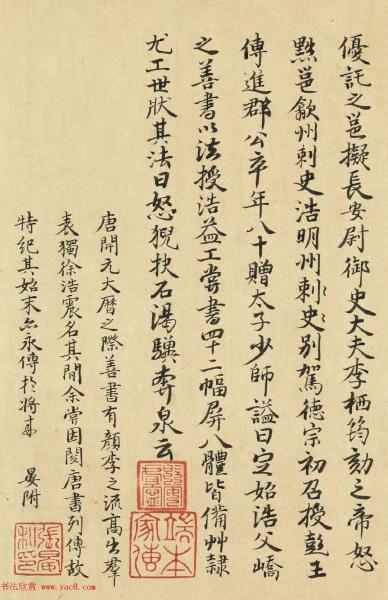 優託之邑擬長安尉御史大夫李栖筠劾之帝怒
黜邑歙州刺史浩明州刺史別駕德宗初召授彭王
傅進郡公卒年八十贈太子少師謚曰定始浩父嶠
之善書以法授浩益工嘗書四十二幅屏八體皆備艸隷
尤工世狀其法曰怒猊抉石渴驥奔泉云
唐開元大曆之際善書有顏李之流高出羣
表獨徐浩震名其間余嘗因閱唐書列傳故
特紀其始末亦永傳於將來
晏附
端本
家傳
書法欣賞 www.yac8.com